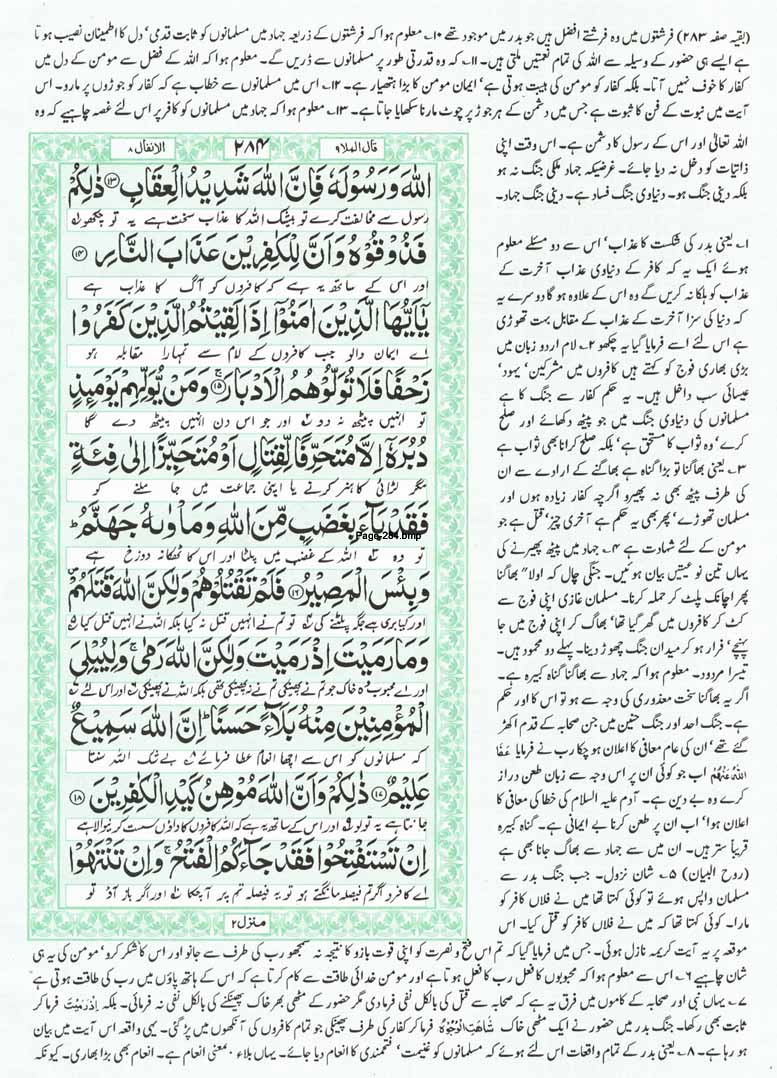 (بقیہ صفحہ ۲۸۳) فرشتوں میں وہ فرشتے افضل ہیں جو بدر میں موجود تھے ۱۰۔ معلوم ہوا کہ فرشتوں کے ذریعہ جہاد میں مسلمانوں کو ثابت قدمی‘ دل کا اطمینان نصیب ہوتا
ہے ایسے ہی حضور کے وسیلہ سے اللہ کی تمام نعمتیں ملتی ہیں۔ ۱۱۔ کہ وہ قدرتی طور پر مسلمانوں سے ڈریں گے۔ معلوم ہوا کہ اللہ کے فضل سے مومن کے دل میں
کفار کا خوف نہیں آتا۔ بلکہ کفار کو مومن کی ہیبت ہوتی ہے‘ ایمان مومن کا بڑا ہتھیار ہے۔ ۱۲۔ اس میں مسلمانوں سے خطاب ہے کہ کفار کو جوڑوں پر مارو۔ اس
آیت میں نبوت کے فن کا ثبوت ہے جس میں دشمن کے ہر جوڑ پر چوٹ مارنا سکھایا جاتا ہے۔ ۱۳۔ معلوم ہوا کہ جہاد میں مسلمانوں کو کافر پر اس لئے غصہ چاہیے کہ وہ
اللہ تعالیٰ اور اس کے رسول کا دشمن ہے۔ اس وقت اپنی
ذاتیات کو دخل نہ دیا جائے۔ غرضیکہ جہاد ملکی جنگ نہ ہو
بلکہ دینی جنگ ہو۔ دنیاوی جنگ فساد ہے۔ دینی جنگ جہاد۔
۱۔ یعنی بدر کی شکست کا عذاب‘ اس سے دو مسئلے معلوم
ہوئے ایک یہ کہ کافر کے دنیاوی عذاب آخرت کے
عذاب کو ہلکا نہ کریں گے وہ اس کے علاوہ ہو گا دوسرے یہ
کہ دنیا کی سزا آخرت کے عذاب کے مقابل بہت تھوڑی
ہے اس لئے اسے فرمایا گیا یہ چکھو ۲۔ لام اردو زبان میں
بڑی بھاری فوج کو کہتے ہیں کافروں میں مشرکین‘ یہود‘
عیسائی سب داخل ہیں۔ یہ حکم کفار سے جنگ کا ہے
مسلمانوں کی دنیاوی جنگ میں جو پیٹھ دکھائے اور صلح
کرے‘ وہ ثواب کا مستحق ہے‘ بلکہ صلح کرانا بھی ثواب ہے
۳۔ یعنی بھاگنا تو بڑا گناہ ہے بھاگنے کے ارادے سے ان
کی طرف پیٹھ بھی نہ پھیرو اگرچہ کفار زیادہ ہوں اور
مسلمان تھوڑے‘ پھر بھی یہ حکم ہے آخری چیز‘ قتل ہے جو
مومن کے لئے شہادت ہے ۴۔ جہاد میں پیٹھ پھیرنے کی
یہاں تین نوعیتیں بیان ہوئیں۔ جنگی چال کہ اولاً بھاگنا
پھر اچانک پلٹ کر حملہ کرنا۔ مسلمان غازی اپنی فوج سے
کٹ کر کافروں میں گھر گیا تھا‘ بھاگ کر اپنی فوج میں جا
پہنچے‘ فرار ہو کر میدان جنگ چھوڑ دینا۔ پہلے دو محمود ہیں۔
تیسرا مردود۔ معلوم ہوا کہ جہاد سے بھاگنا گناہ کبیرہ ہے۔
اگر یہ بھاگنا سخت معذوری کی وجہ سے ہو تو اس کا اور حکم
ہے۔ جنگ احد اور جنگ حنین میں جن صحابہ کے قدم اکھڑ
گئے تھے‘ ان کی عام معافی کا اعلان ہو چکا رب نے فرمایا عَفَا
اللّٰهُ عَنْهُمْ اب جو کوئی ان پر اس وجہ سے زبان طعن دراز
کرے وہ بے دین ہے۔ آدم علیہ السلام کی خطا کی معافی کا
اعلان ہوا‘ اب ان پر طعن کرنا بے ایمانی ہے۔ گناہ کبیرہ
قریباً ستر ہیں۔ ان میں سے جہاد سے بھاگ جانا بھی ہے
(روح البیان) ۵۔ شان نزول۔ جب جنگ بدر سے
مسلمان واپس ہوئے تو کوئی کہتا تھا میں نے فلاں کافر کو
مارا۔ کوئی کہتا تھا کہ میں نے فلاں کافر کو قتل کیا۔ اس
قال الملا۹ ۲۸۴ الانفال ۸
اللّٰهَ وَرَسُوْلَهٗ فَاِنَّ اللّٰهَ شَدِيْدُ الْعِقَابِ ۱۳ ذٰلِكُمْ
رسول سے مخالفت کرے تو بیشک اللہ کا عذاب سخت ہے یہ تو چکھو
فَذُوْقُوْهُ وَاَنَّ لِلْكٰفِرِيْنَ عَذَابَ النَّارِ ۱۴
اور اس کے ساتھ یہ ہے کہ کافروں کو آگ کا عذاب ہے
يٰٓاَيُّهَا الَّذِيْنَ اٰمَنُوْٓا اِذَا لَقِيْتُمُ الَّذِيْنَ كَفَرُوْا
اے ایمان والو جب کافروں کے لام سے تمہارا مقابلہ ہو
زَحْفًا فَلَا تُوَلُّوْهُمُ الْاَدْبَارَ ۱۵ وَمَنْ يُّوَلِّهِمْ يَوْمَئِذٍ
تو انہیں پیٹھ نہ دو اور جو اس دن انہیں پیٹھ دے گا
دُبُرَهٗٓ اِلَّا مُتَحَرِّفًا لِّقِتَالٍ اَوْ مُتَحَيِّزًا اِلٰى فِئَةٍ
مگر لڑائی کا ہنر کرنے یا اپنی جماعت میں جا ملنے کو
فَقَدْ بَآءَ بِغَضَبٍ مِّنَ اللّٰهِ وَمَاْوٰىهُ جَهَنَّمُ ؕ
Page-284.bmp
تو وہ اللہ کے غضب میں پلٹا اور اس کا ٹھکانہ دوزخ ہے
وَبِئْسَ الْمَصِيْرُ ۱۶ فَلَمْ تَقْتُلُوْهُمْ وَلٰكِنَّ اللّٰهَ قَتَلَهُمْ
اور کیا بری ہے جگہ پلٹنے کی تو تم نے انہیں قتل نہ کیا بلکہ اللہ نے انہیں قتل کیا
وَمَا رَمَيْتَ اِذْ رَمَيْتَ وَلٰكِنَّ اللّٰهَ رَمٰى ۚ وَلِيُبْلِيَ
اور اے محبوب وہ خاک جو تم نے پھینکی تم نے نہ پھینکی تھی بلکہ اللہ نے پھینکی اور اس لئے
الْمُؤْمِنِيْنَ مِنْهُ بَلَآءً حَسَنًا ؕ اِنَّ اللّٰهَ سَمِيْعٌ
کہ مسلمانوں کو اس سے اچھا انعام عطا فرمائے بے شک اللہ سنتا
عَلِيْمٌ ۱۷ ذٰلِكُمْ وَاَنَّ اللّٰهَ مُوْهِنُ كَيْدِ الْكٰفِرِيْنَ ۱۸
جانتا ہے یہ تو لو اور اس کے ساتھ یہ ہے کہ اللہ کافروں کا داؤں سست کرنیوالا ہے
اِنْ تَسْتَفْتِحُوْا فَقَدْ جَآءَكُمُ الْفَتْحُ ۚ وَاِنْ تَنْتَهُوْا
اے کافرو اگر تم فیصلہ مانگتے ہو تو یہ فیصلہ تم پر آچکا اور اگر باز آؤ تو
منزل ۲
موقعہ پر یہ آیت کریمہ نازل ہوئی۔ جس میں فرمایا گیا کہ تم اس فتح و نصرت کو اپنی قوت بازو کا نتیجہ نہ سمجھو رب کی طرف سے جانو اور اس کا شکر کرو‘ مومن کی یہ ہی
شان چاہیے ۶۔ اس سے معلوم ہوا کہ محبوبوں کا فعل رب کا فعل ہوتا ہے اور مومن خدائی طاقت سے کام کرتا ہے کہ اس کے ہاتھ پاؤں میں رب کی طاقت ہوتی ہے
۷۔ یہاں نبی اور صحابہ کے کاموں میں فرق یہ ہے کہ صحابہ سے قتل کی بالکل نفی فرما دی مگر حضور کے مٹھی بھر خاک پھینکنے کی بالکل نفی نہ فرمائی۔ بلکہ اِذْ رَمَيْتَ فرما کر
ثابت بھی رکھا۔ جنگ بدر میں حضور نے ایک مٹھی خاک شَاهَتِ الْوُجُوْهُ فرما کر کفار کی طرف پھینکی جو تمام کافروں کی آنکھوں میں پڑ گئی۔ یہی واقعہ اس آیت میں بیان
ہو رہا ہے۔ ۸۔ یعنی بدر کے تمام واقعات اس لئے ہوئے کہ مسلمانوں کو غنیمت‘ فتحمندی کا انعام دیا جائے۔ یہاں بلاء بمعنی انعام ہے۔ انعام بھی بڑا بھاری۔ کیونکہ